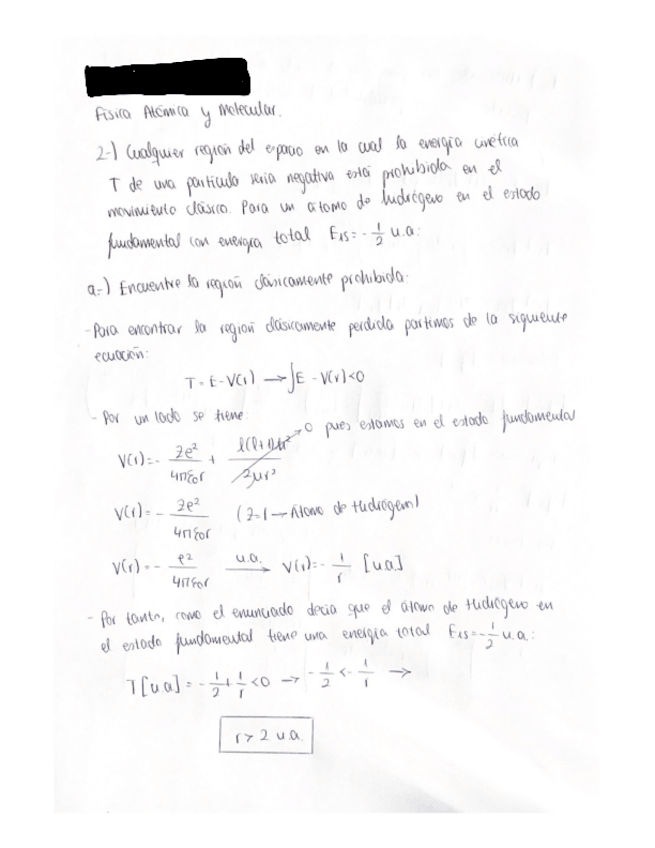 Física Atómica y Molecular.
2-) Cualquier región del espacio en la cual la energía cinética
T de una partícula sería negativa está prohibida en el
movimiento clásico. Para un átomo de hidrógeno en el estado
fundamental con energía total E₁s = -1/2 u.a:
a-) Encuentre la región clásicamente prohibida:
- Para encontrar la región clásicamente perdida partimos de la siguiente
ecuación:
T = E - V(r) → ∫E - V(r) < 0
- Por un lado se tiene:
V(r) = - Ze²/4πε₀r + l(l+1)ħ²/2μr² → 0 pues estamos en el estado fundamental
V(r) = - Ze²/4πε₀r (Z=1 → Átomo de Hidrógeno)
V(r) = - e²/4πε₀r u.a. → V(r) = - 1/r [u.a]
- Por tanto, como el enunciado decía que el átomo de Hidrógeno en
el estado fundamental tiene una energía total E₁s = -1/2 u.a:
T[u.a] = - 1/2 + 1/r < 0 → - 1/2 < - 1/r →
r > 2 u.a.